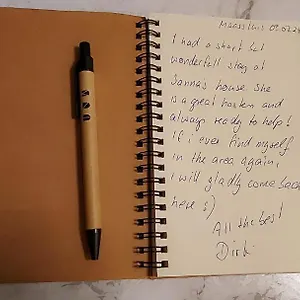 Maassluis
I had a short but
wonderfull stay at
Sanna's house she
is a great hostess and
always ready to help!
If i ever find myself
in the area again,
i will gladly come back
here :)
All the best
Dirk